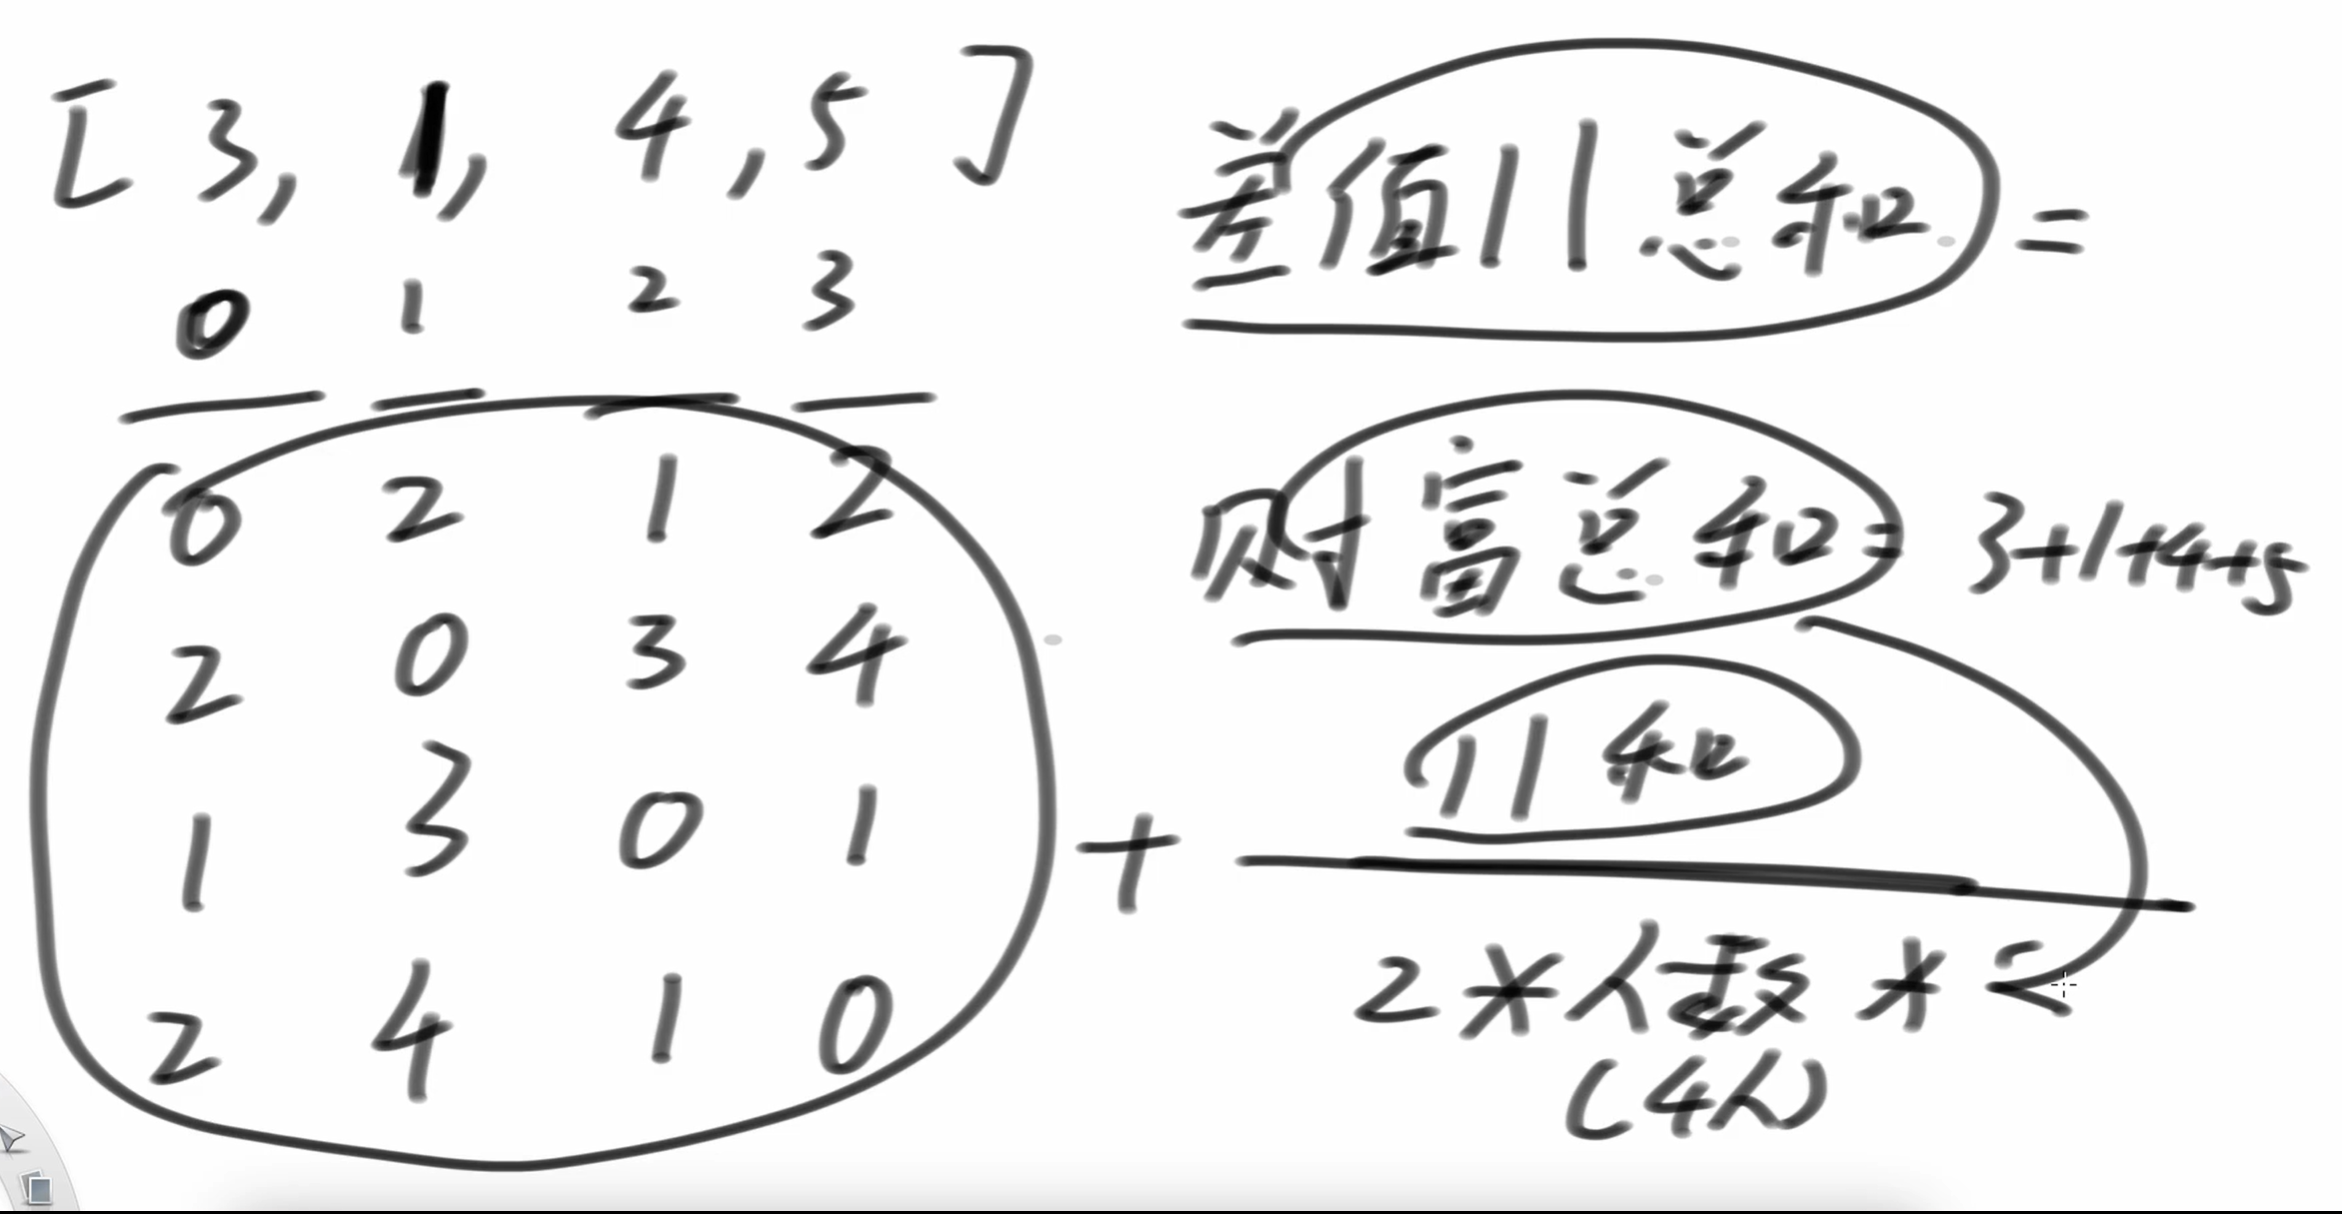 [3, 1, 4, 5]
0 1 2 3
0 2 1 2
2 0 3 4
1 3 0 1
2 4 1 0
+
差值||总和 =
财富总和 = 3+1+4+5
||和
2 * 人数 *
(4人)